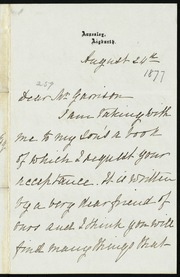 Annesley,
Aigburth.
August 24th
1877
259
Dear Mr Garrison
I am taking with
me to my Son's a book
of which I request your
acceptance. It is written
by a very dear friend of
ours and I think you will
find many things that